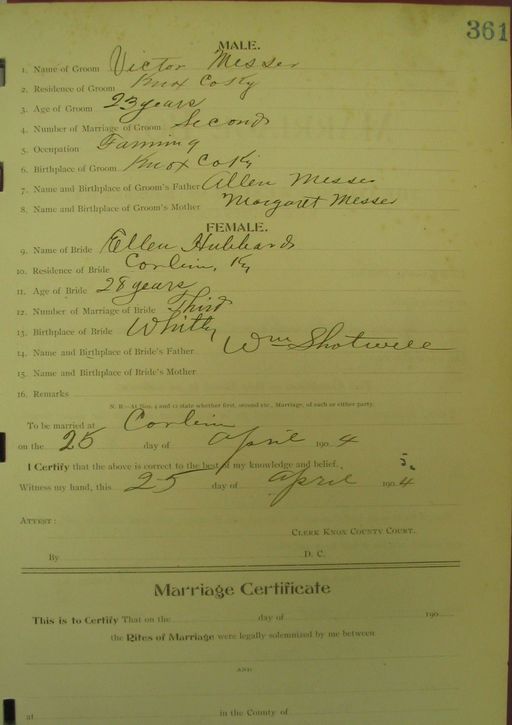 361
MALE.
1. Name of Groom Victor Messer
2. Residence of Groom Knox Co Ky
3. Age of Groom 23 years
4. Number of Marriage of Groom Second
5. Occupation Farming
6. Birthplace of Groom Knox Co Ky
7. Name and Birthplace of Groom's Father Allen Messer
8. Name and Birthplace of Groom's Mother Margaret Messer
FEMALE.
9. Name of Bride Ellen Hubbard
10. Residence of Bride Corbin, Ky
11. Age of Bride 28 years
12. Number of Marriage of Bride Third
13. Birthplace of Bride Whitly
14. Name and Birthplace of Bride's Father Wm Shotwell
15. Name and Birthplace of Bride's Mother
16. Remarks
N. B.—At Nos. 4 and 12 state whether first, second etc., Marriage, of each or either party.
To be married at Corbin
on the 25 day of April 190 4
I Certify that the above is correct to the best of my knowledge and belief.
5
Witness my hand, this 25 day of April 190 4
ATTEST:
CLERK KNOX COUNTY COURT.
By D. C.
Marriage Certificate
This is to Certify That on the day of 190
the Rites of Marriage were legally solemnized by me between
AND
at in the County of